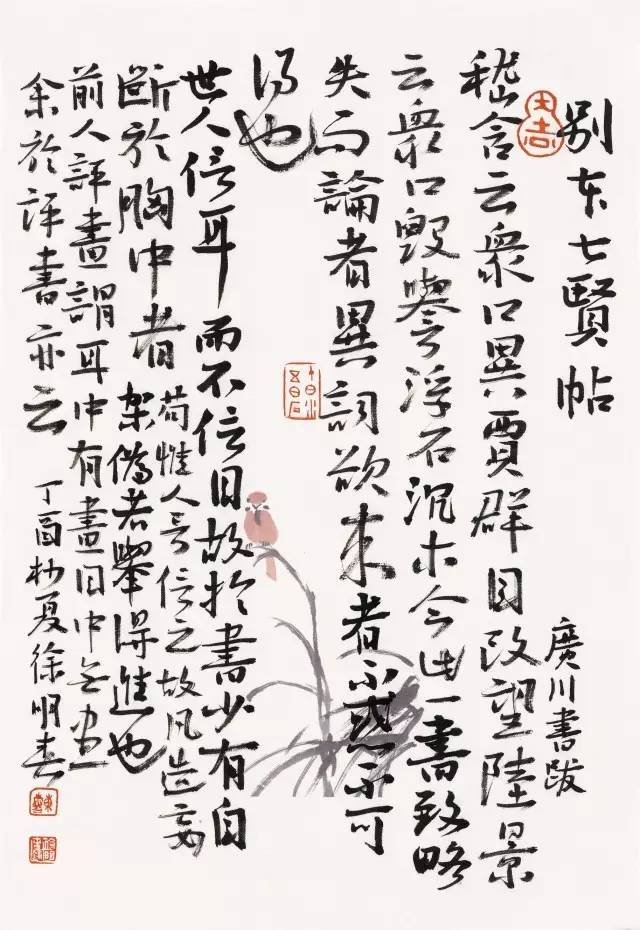 別本七賢帖
廣川書跋
嵇含云衆口異賈群目改望陸景
云衆口毀譽浮石沉木今此一書致略
失而論者異詞欲來者不惑不可
得也
世人信耳而不信目故於書少有自
斷於胸中者苟惟人言信之故凡造妄
架偽者舉得進也
前人評畫謂耳中有畫目中無畫
余於評書亦云
丁酉杪夏徐明春
大吉